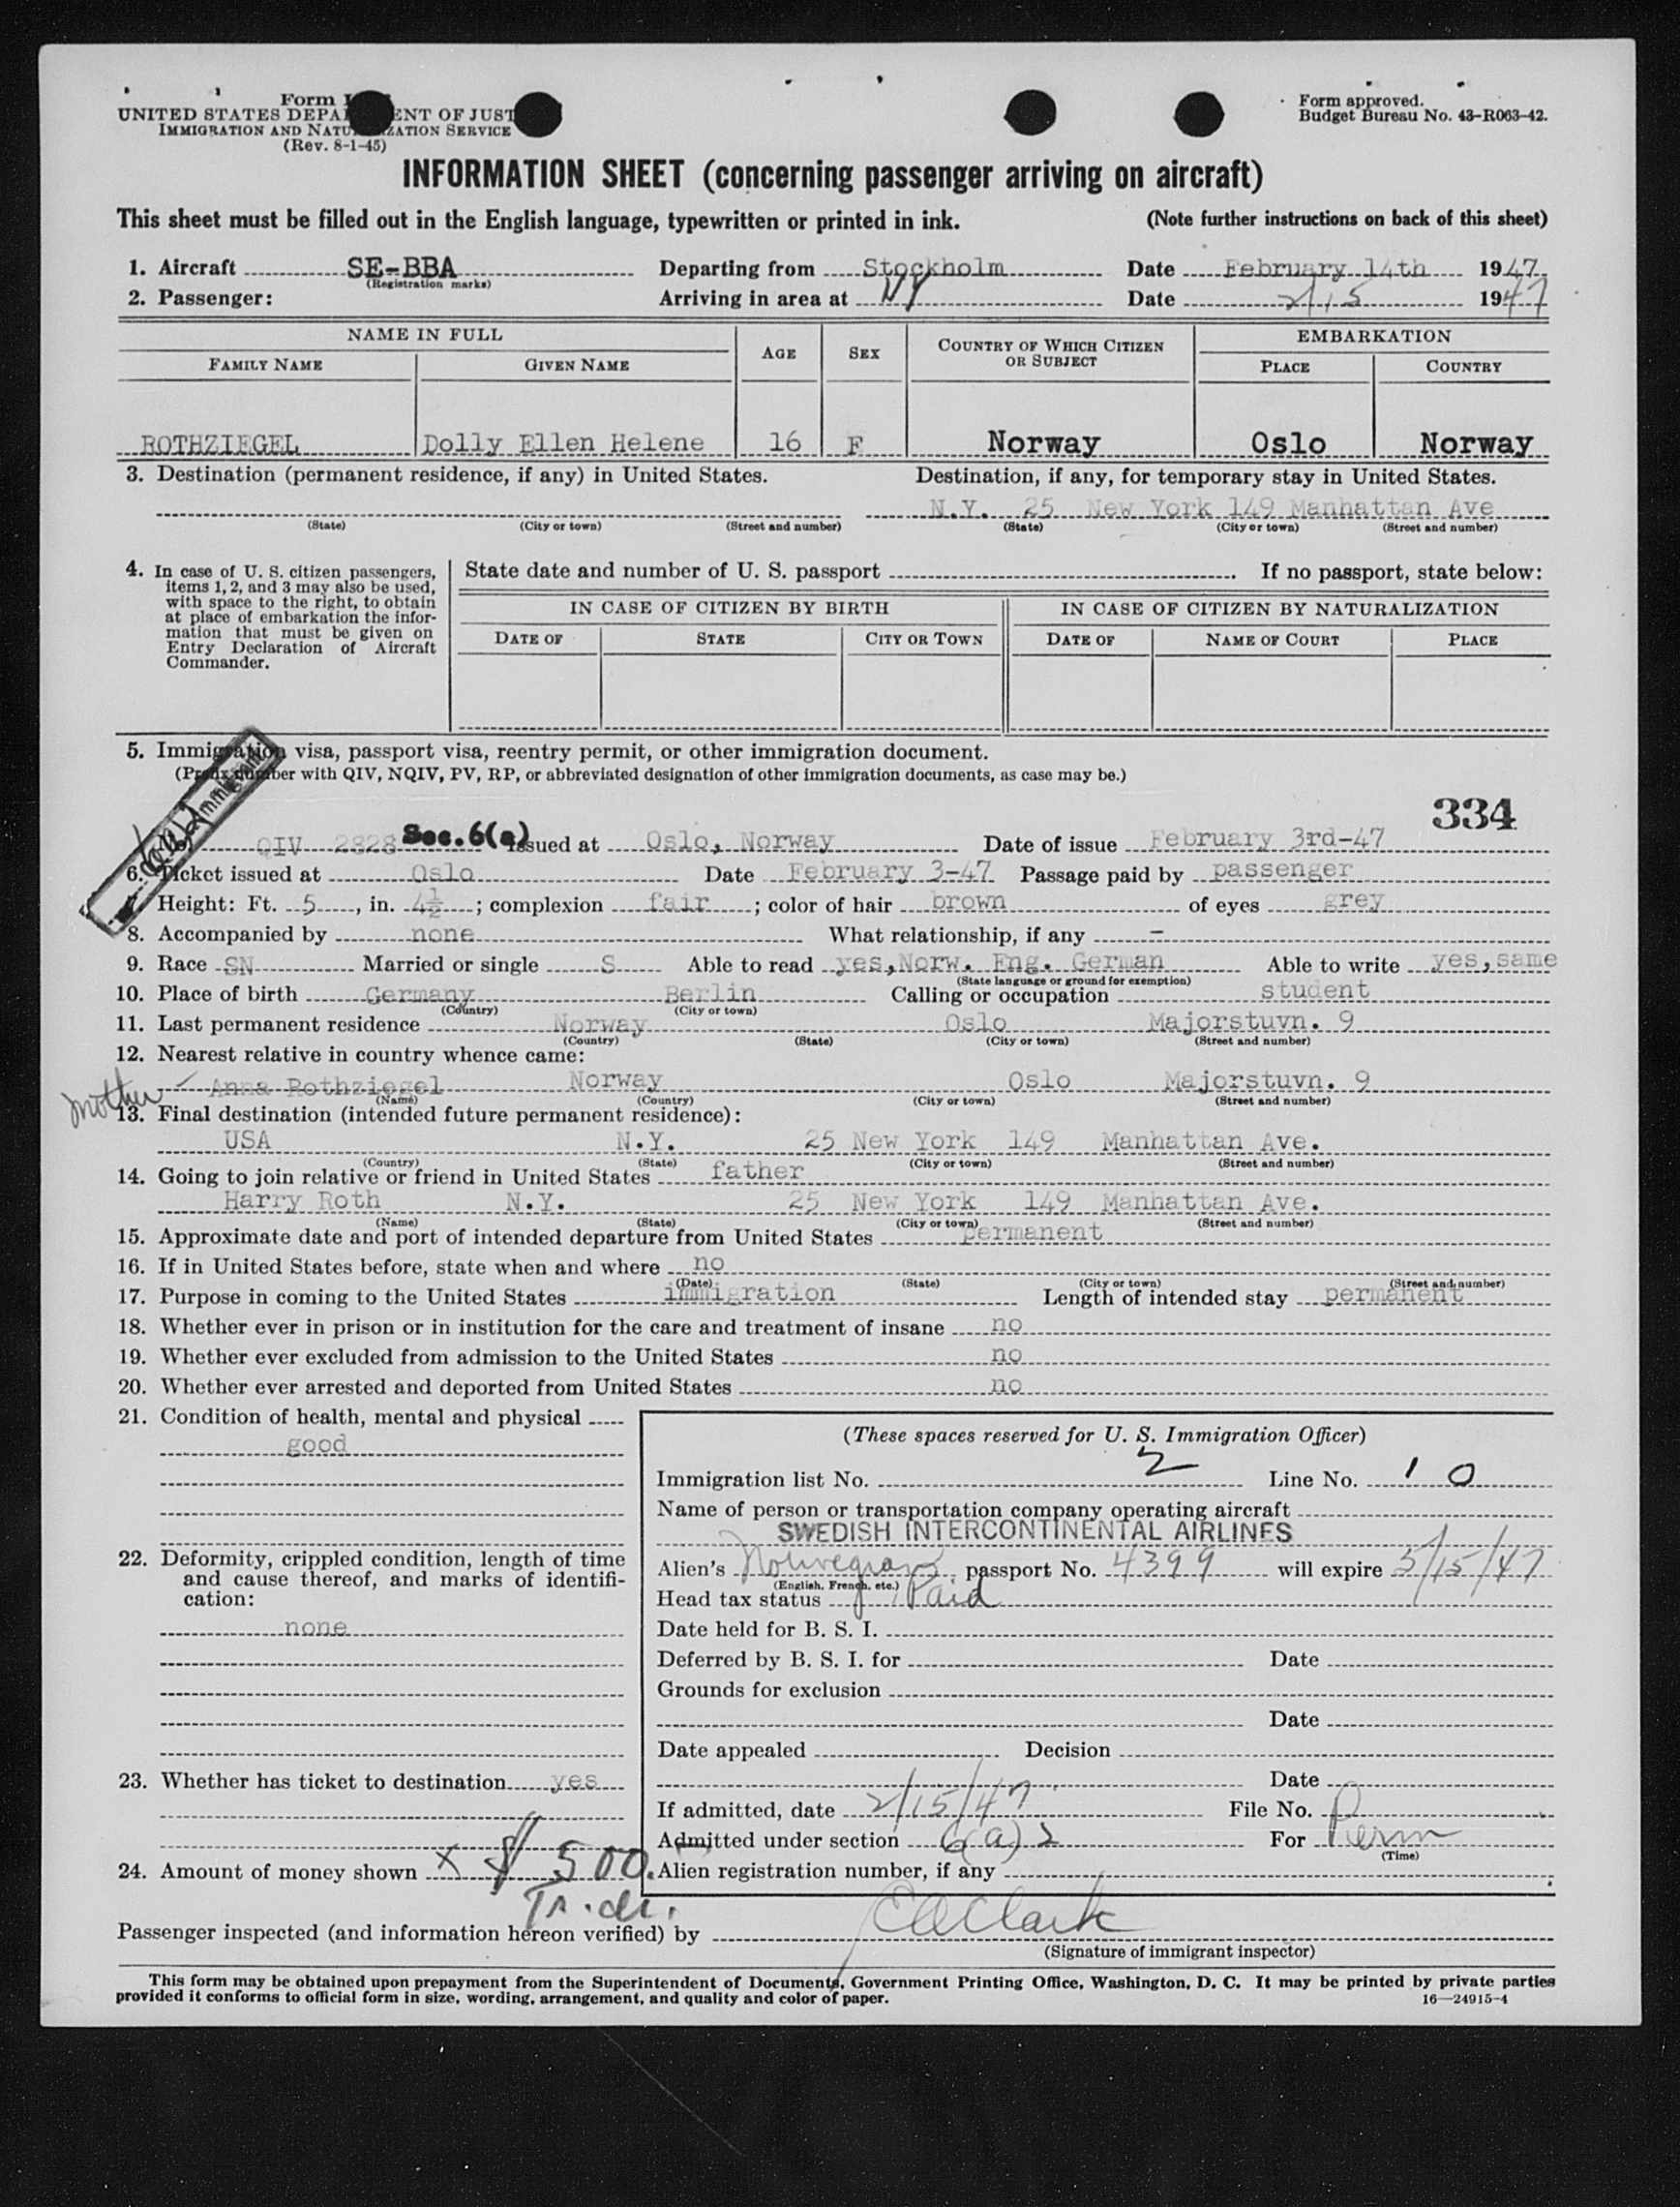 Form I
UNITED STATES DEPA ENT OF JUST
IMMIGRATION AND NATU ZATION SERVICE
(Rev. 8-1-45)
Form approved.
Budget Bureau No. 43-R063-42.
INFORMATION SHEET (concerning passenger arriving on aircraft)
This sheet must be filled out in the English language, typewritten or printed in ink. (Note further instructions on back of this sheet)
1. Aircraft SE-BBA Departing from Stockholm Date February 14th 1947
(Registration marks)
2. Passenger: Arriving in area at NY Date 2/15 1947
NAME IN FULL AGE SEX COUNTRY OF WHICH CITIZEN OR SUBJECT EMBARKATION
FAMILY NAME GIVEN NAME PLACE COUNTRY
ROTHZIEGEL Dolly Ellen Helene 16 F Norway Oslo Norway
3. Destination (permanent residence, if any) in United States. Destination, if any, for temporary stay in United States.
N.Y. 25 New York 149 Manhattan Ave
(State) (City or town) (Street and number) (State) (City or town) (Street and number)
4. In case of U. S. citizen passengers, items 1, 2, and 3 may also be used, with space to the right, to obtain at place of embarkation the information that must be given on Entry Declaration of Aircraft Commander.
State date and number of U. S. passport . If no passport, state below:
IN CASE OF CITIZEN BY BIRTH IN CASE OF CITIZEN BY NATURALIZATION
DATE OF STATE CITY OR TOWN DATE OF NAME OF COURT PLACE
5. Immigration visa, passport visa, reentry permit, or other immigration document.
(Prefix number with QIV, NQIV, PV, RP, or abbreviated designation of other immigration documents, as case may be.)
Immigrant
334
QIV 2828 Sec. 6(a) Issued at Oslo, Norway Date of issue February 3rd-47
6. Ticket issued at Oslo Date February 3-47 Passage paid by passenger
7. Height: Ft. 5, in. 4½; complexion fair; color of hair brown of eyes grey
8. Accompanied by none What relationship, if any -
9. Race SN Married or single S Able to read yes, Norw. Eng. German Able to write yes, same
(State language or ground for exemption)
10. Place of birth Germany Berlin Calling or occupation student
(Country) (City or town)
11. Last permanent residence Norway Oslo Majorstuvn. 9
(Country) (State) (City or town) (Street and number)
12. Nearest relative in country whence came:
mother Anna Rothziegel Norway Oslo Majorstuvn. 9
(Name) (Country) (City or town) (Street and number)
13. Final destination (intended future permanent residence):
USA N.Y. 25 New York 149 Manhattan Ave.
(Country) (State) (City or town) (Street and number)
14. Going to join relative or friend in United States father
Harry Roth N.Y. 25 New York 149 Manhattan Ave.
(Name) (State) (City or town) (Street and number)
15. Approximate date and port of intended departure from United States permanent
16. If in United States before, state when and where no
(Date) (State) (City or town) (Street and number)
17. Purpose in coming to the United States immigration Length of intended stay permanent
18. Whether ever in prison or in institution for the care and treatment of insane no
19. Whether ever excluded from admission to the United States no
20. Whether ever arrested and deported from United States no
21. Condition of health, mental and physical
good
22. Deformity, crippled condition, length of time and cause thereof, and marks of identification:
none
23. Whether has ticket to destination yes
24. Amount of money shown x $ 500.
Tr. ch.
(These spaces reserved for U. S. Immigration Officer)
Immigration list No. 2 Line No. 10
Name of person or transportation company operating aircraft
SWEDISH INTERCONTINENTAL AIRLINES
Alien's Norwegian passport No. 4399 will expire 5/15/47
(English, French, etc.)
Head tax status Paid
Date held for B. S. I.
Deferred by B. S. I. for Date
Grounds for exclusion
Date
Date appealed Decision
Date
If admitted, date 2/15/47 File No.
Admitted under section 6(a)2 For Perm
(Time)
Alien registration number, if any
Passenger inspected (and information hereon verified) by E A Clark
(Signature of immigrant inspector)
This form may be obtained upon prepayment from the Superintendent of Documents, Government Printing Office, Washington, D. C. It may be printed by private parties
provided it conforms to official form in size, wording, arrangement, and quality and color of paper. 16—24915-4